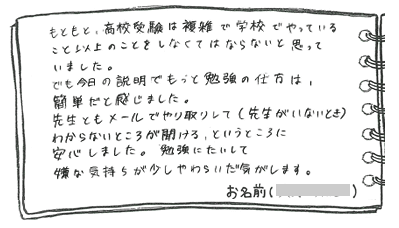 もともと、高校受験は複雑で学校でやっている
こと以上のことをしなくてはならないと思って
いました。
でも今日の説明でもっと勉強の仕方は、
簡単だと感じました。
先生ともメールでやり取りして(先生がいないとき)
わからないところが聞ける、というところに
安心しました。勉強にたいして
嫌な気持ちが少しやわらいだ気がします。
お名前( )